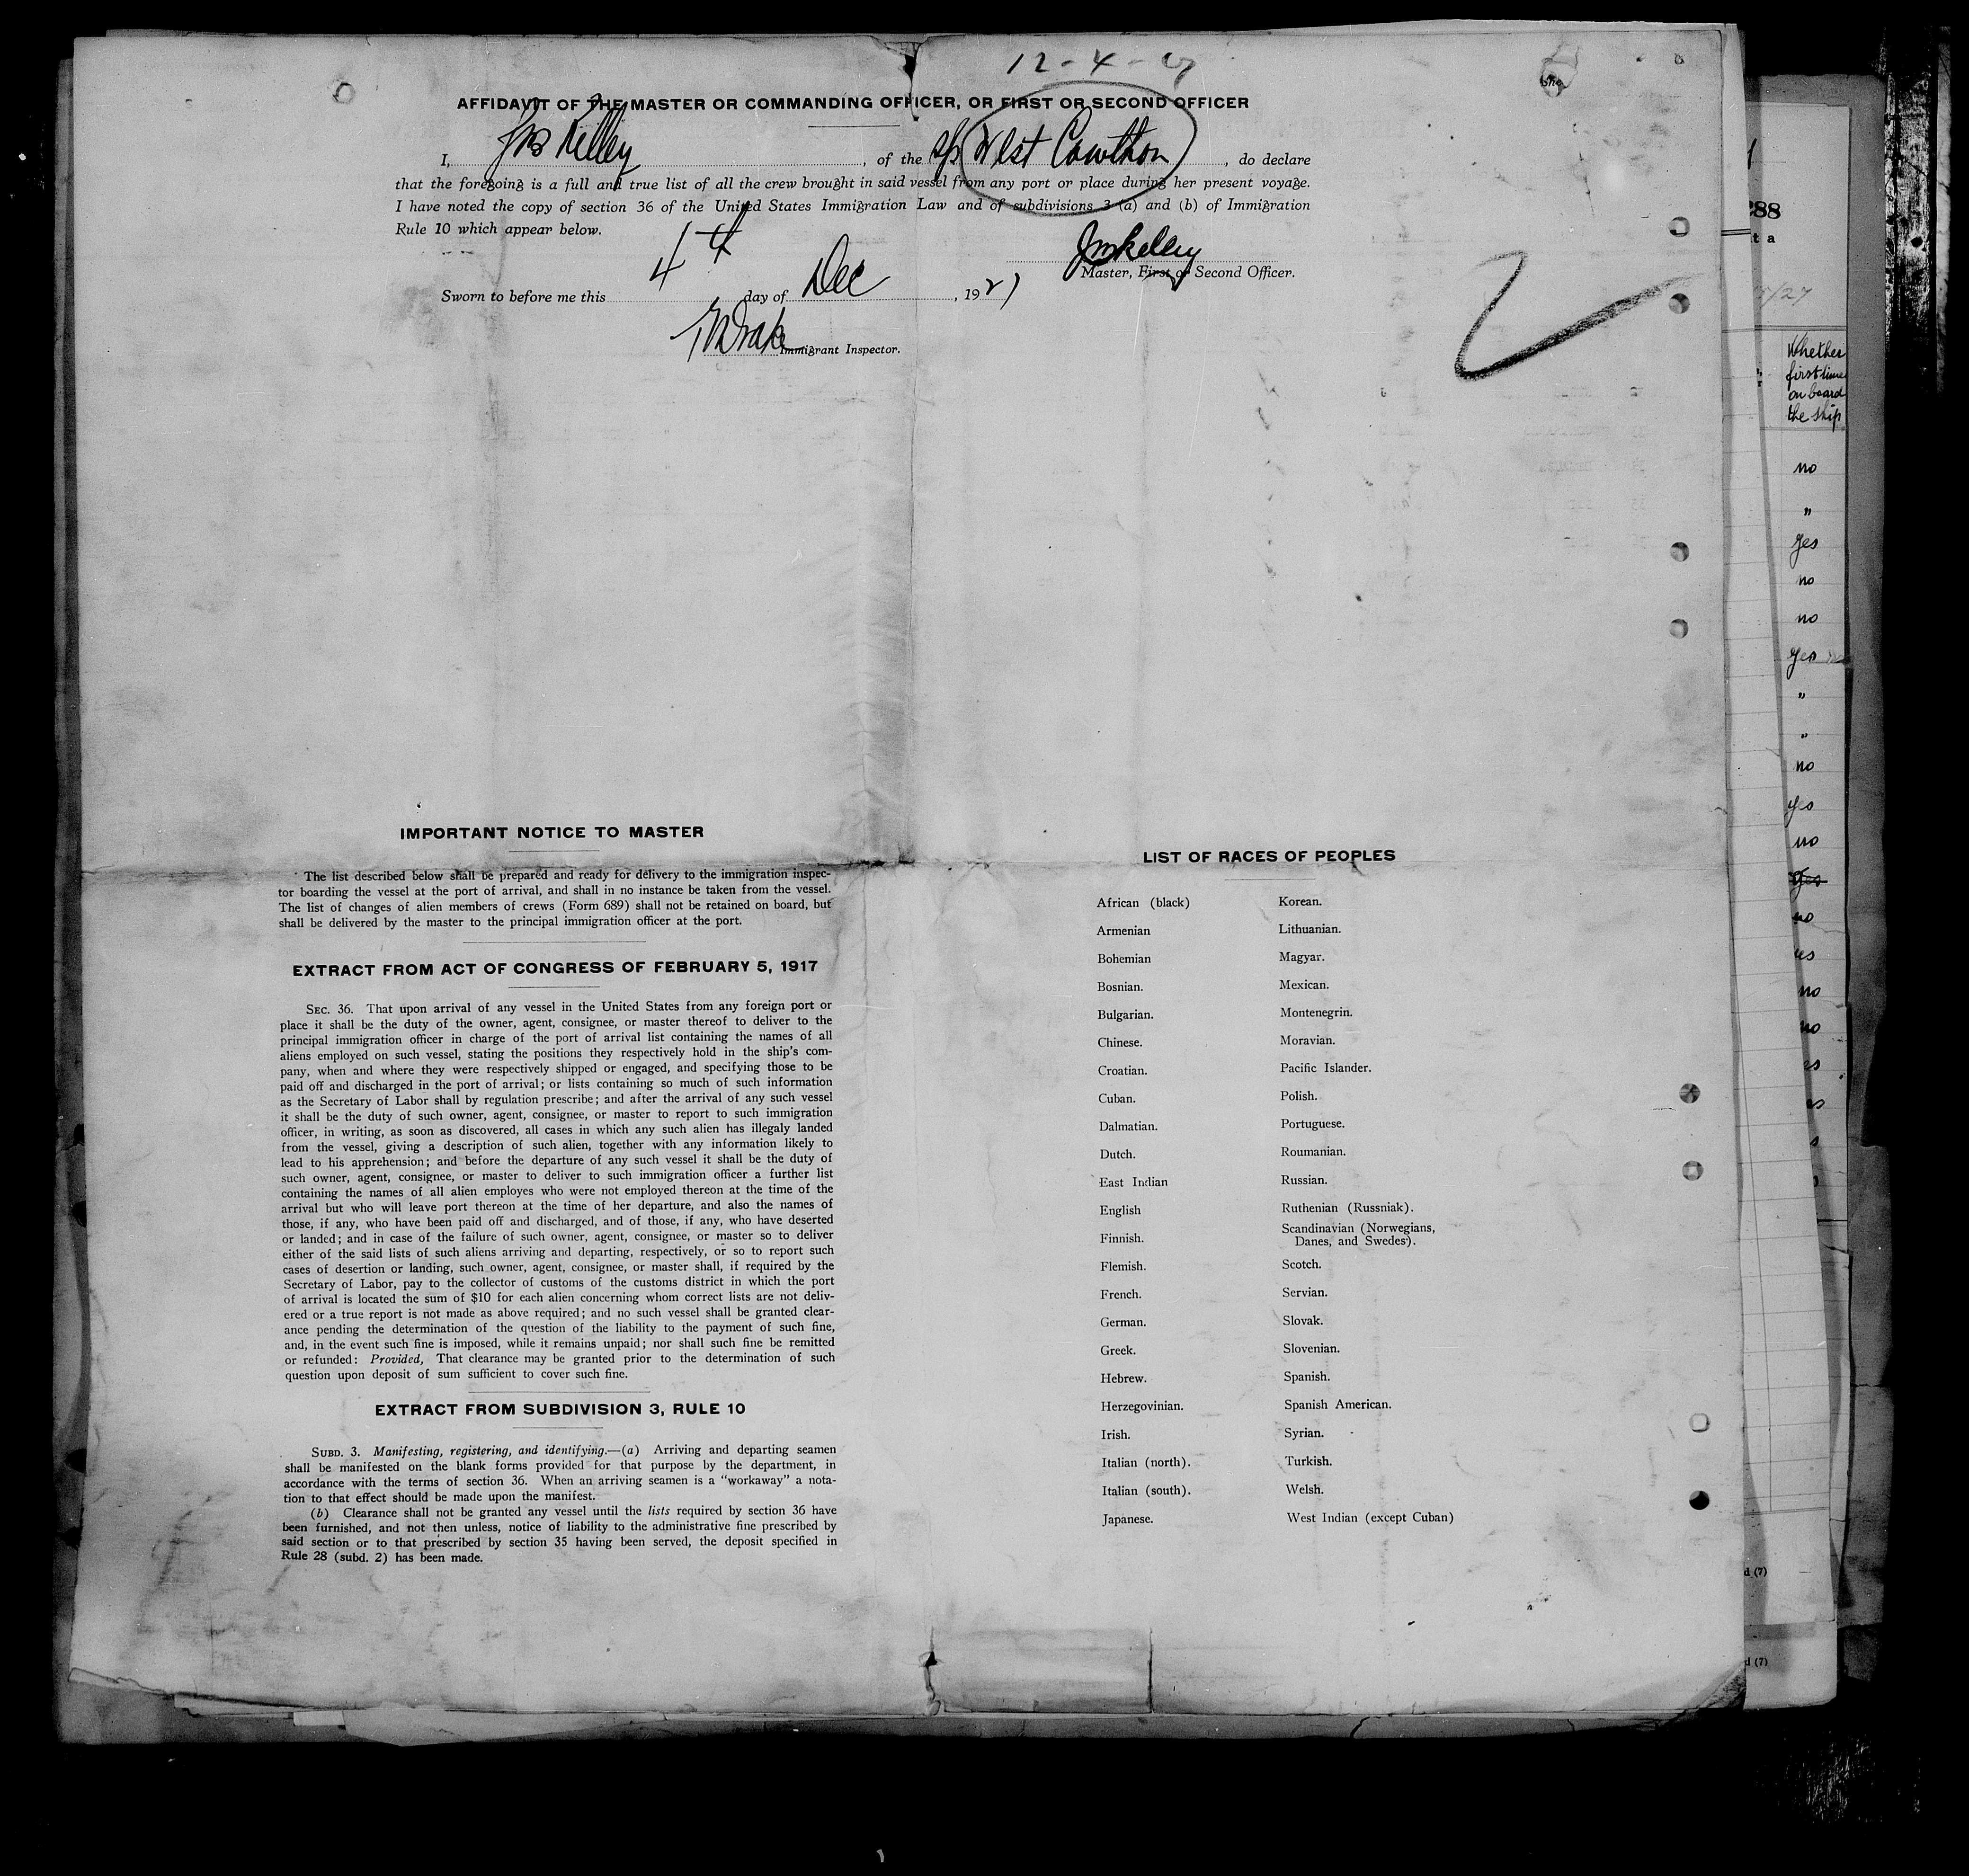 12-4-27
AFFIDAVIT OF THE MASTER OR COMMANDING OFFICER, OR FIRST OR SECOND OFFICER
I, Jas Kelley, of the S/S West Cawthon, do declare
that the foregoing is a full and true list of all the crew brought in said vessel from any port or place during her present voyage.
I have noted the copy of section 36 of the United States Immigration Law and of subdivisions 3 (a) and (b) of Immigration
Rule 10 which appear below.
Kelley
Master, First or Second Officer.
Sworn to before me this 4th day of Dec, 1927
Drake
Immigrant Inspector.
IMPORTANT NOTICE TO MASTER
The list described below shall be prepared and ready for delivery to the immigration inspec-
tor boarding the vessel at the port of arrival, and shall in no instance be taken from the vessel.
The list of changes of alien members of crews (Form 689) shall not be retained on board, but
shall be delivered by the master to the principal immigration officer at the port.
EXTRACT FROM ACT OF CONGRESS OF FEBRUARY 5, 1917
SEC. 36. That upon arrival of any vessel in the United States from any foreign port or
place it shall be the duty of the owner, agent, consignee, or master thereof to deliver to the
principal immigration officer in charge of the port of arrival list containing the names of all
aliens employed on such vessel, stating the positions they respectively hold in the ship's com-
pany, when and where they were respectively shipped or engaged, and specifying those to be
paid off and discharged in the port of arrival; or lists containing so much of such information
as the Secretary of Labor shall by regulation prescribe; and after the arrival of any such vessel
it shall be the duty of such owner, agent, consignee, or master to report to such immigration
officer, in writing, as soon as discovered, all cases in which any such alien has illegaly landed
from the vessel, giving a description of such alien, together with any information likely to
lead to his apprehension; and before the departure of any such vessel it shall be the duty of
such owner, agent, consignee, or master to deliver to such immigration officer a further list
containing the names of all alien employes who were not employed thereon at the time of the
arrival but who will leave port thereon at the time of her departure, and also the names of
those, if any, who have been paid off and discharged, and of those, if any, who have deserted
or landed; and in case of the failure of such owner, agent, consignee, or master so to deliver
either of the said lists of such aliens arriving and departing, respectively, or so to report such
cases of desertion or landing, such owner, agent, consignee, or master shall, if required by the
Secretary of Labor, pay to the collector of customs of the customs district in which the port
of arrival is located the sum of $10 for each alien concerning whom correct lists are not deliv-
ered or a true report is not made as above required; and no such vessel shall be granted clear-
ance pending the determination of the question of the liability to the payment of such fine,
and, in the event such fine is imposed, while it remains unpaid; nor shall such fine be remitted
or refunded: Provided, That clearance may be granted prior to the determination of such
question upon deposit of sum sufficient to cover such fine.
EXTRACT FROM SUBDIVISION 3, RULE 10
SUBD. 3. Manifesting, registering, and identifying.—(a) Arriving and departing seamen
shall be manifested on the blank forms provided for that purpose by the department, in
accordance with the terms of section 36. When an arriving seamen is a "workaway" a nota-
tion to that effect should be made upon the manifest.
(b) Clearance shall not be granted any vessel until the lists required by section 36 have
been furnished, and not then unless, notice of liability to the administrative fine prescribed by
said section or to that prescribed by section 35 having been served, the deposit specified in
Rule 28 (subd. 2) has been made.
LIST OF RACES OF PEOPLES
African (black) Korean.
Armenian Lithuanian.
Bohemian Magyar.
Bosnian. Mexican.
Bulgarian. Montenegrin.
Chinese. Moravian.
Croatian. Pacific Islander.
Cuban. Polish.
Dalmatian. Portuguese.
Dutch. Roumanian.
East Indian Russian.
English Ruthenian (Russniak).
Finnish. Scandinavian (Norwegians,
Danes, and Swedes).
Flemish. Scotch.
French. Servian.
German. Slovak.
Greek. Slovenian.
Hebrew. Spanish.
Herzegovinian. Spanish American.
Irish. Syrian.
Italian (north). Turkish.
Italian (south). Welsh.
Japanese. West Indian (except Cuban)
288
t a
/27
Whether
first time
on board
the ship
no
"
yes
no
no
yes
"
"
no
yes
no
yes
no
es
no
no
es
es
s
d (7)
d (7)